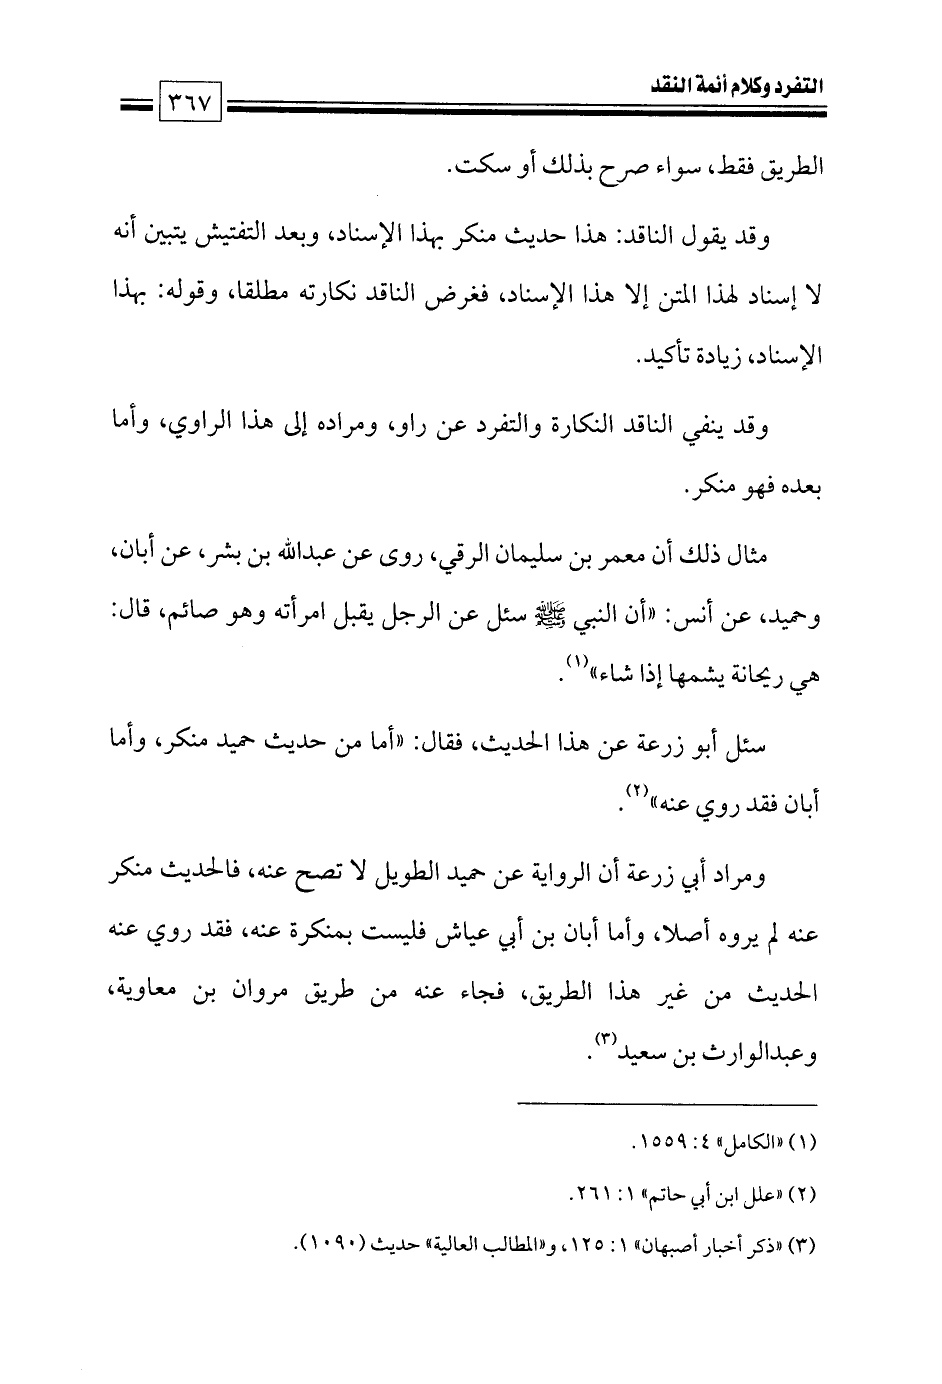 التفرد وكلام أئمة النقد
٣٦٧
الطريق فقط، سواء صرح بذلك أو سكت.
وقد يقول الناقد: هذا حديث منكر بهذا الإسناد، وبعد التفتيش يتبين أنه
لا إسناد لهذا المتن إلا هذا الإسناد، فغرض الناقد نكارته مطلقا، وقوله: بهذا
الإسناد، زيادة تأكيد.
وقد ينفي الناقد النكارة والتفرد عن راو، ومراده إلى هذا الراوي، وأما
بعده فهو منكر.
مثال ذلك أن معمر بن سليمان الرقي، روى عن عبدالله بن بشر، عن أبان،
وحميد، عن أنس: «أن النبي ﷺ سئل عن الرجل يقبل امرأته وهو صائم، قال:
هي ريحانة يشمها إذا شاء»(١).
سئل أبو زرعة عن هذا الحديث، فقال: «أما من حديث حميد منكر، وأما
أبان فقد روي عنه»(٢).
ومراد أبي زرعة أن الرواية عن حميد الطويل لا تصح عنه، فالحديث منكر
عنه لم يروه أصلا، وأما أبان بن أبي عياش فليست بمنكرة عنه، فقد روي عنه
الحديث من غير هذا الطريق، فجاء عنه من طريق مروان بن معاوية،
وعبدالوارث بن سعيد(٣).
(١) «الكامل» ٤: ١٥٥٩.
(٢) «علل ابن أبي حاتم» ١: ٢٦١.
(٣) «ذكر أخبار أصبهان» ١: ١٢٥، و«المطالب العالية» حديث (١٠٩٠).